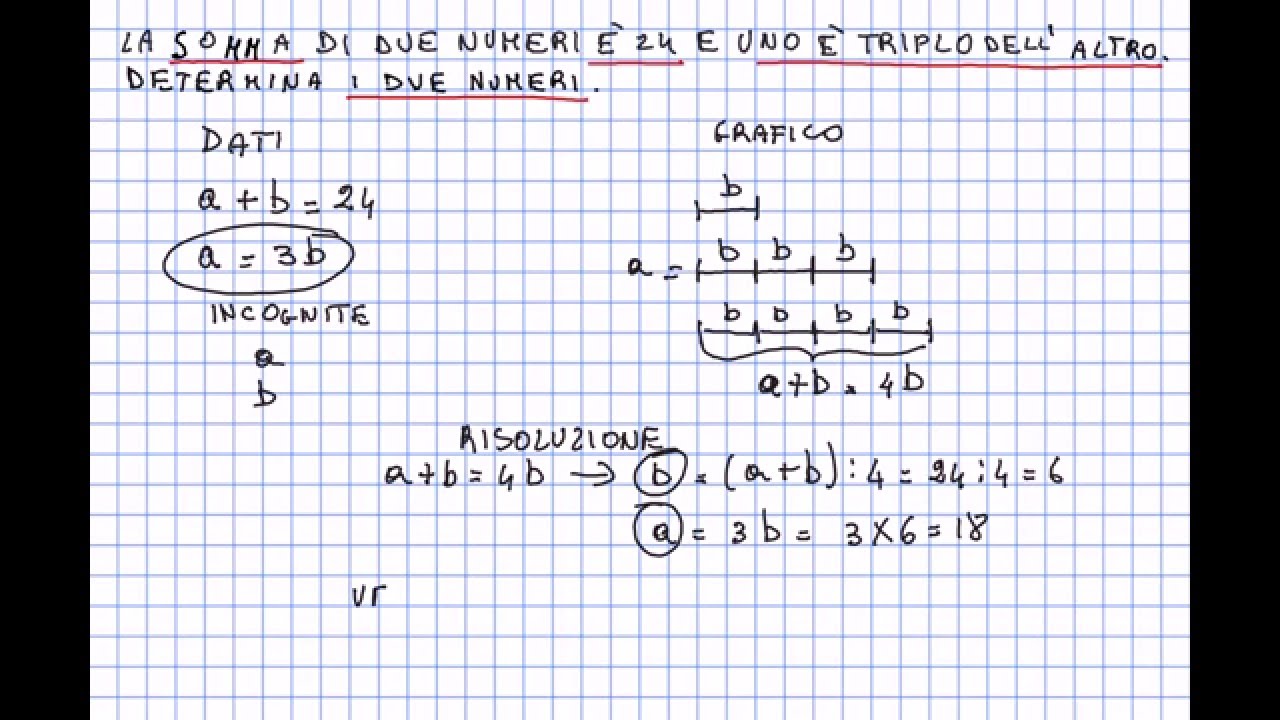 LA SOMMA DI DUE NUMERI È 24 E UNO È TRIPLO DELL'ALTRO.
DETERMINA I DUE NUMERI.
DATI
a + b = 24
a = 3b
INCOGNITE
a
b
GRAFICO
b
a = b b b
b b b b
a+b = 4b
RISOLUZIONE
a+b = 4b → b = (a+b):4 = 24:4 = 6
a = 3b = 3X6 = 18
vr